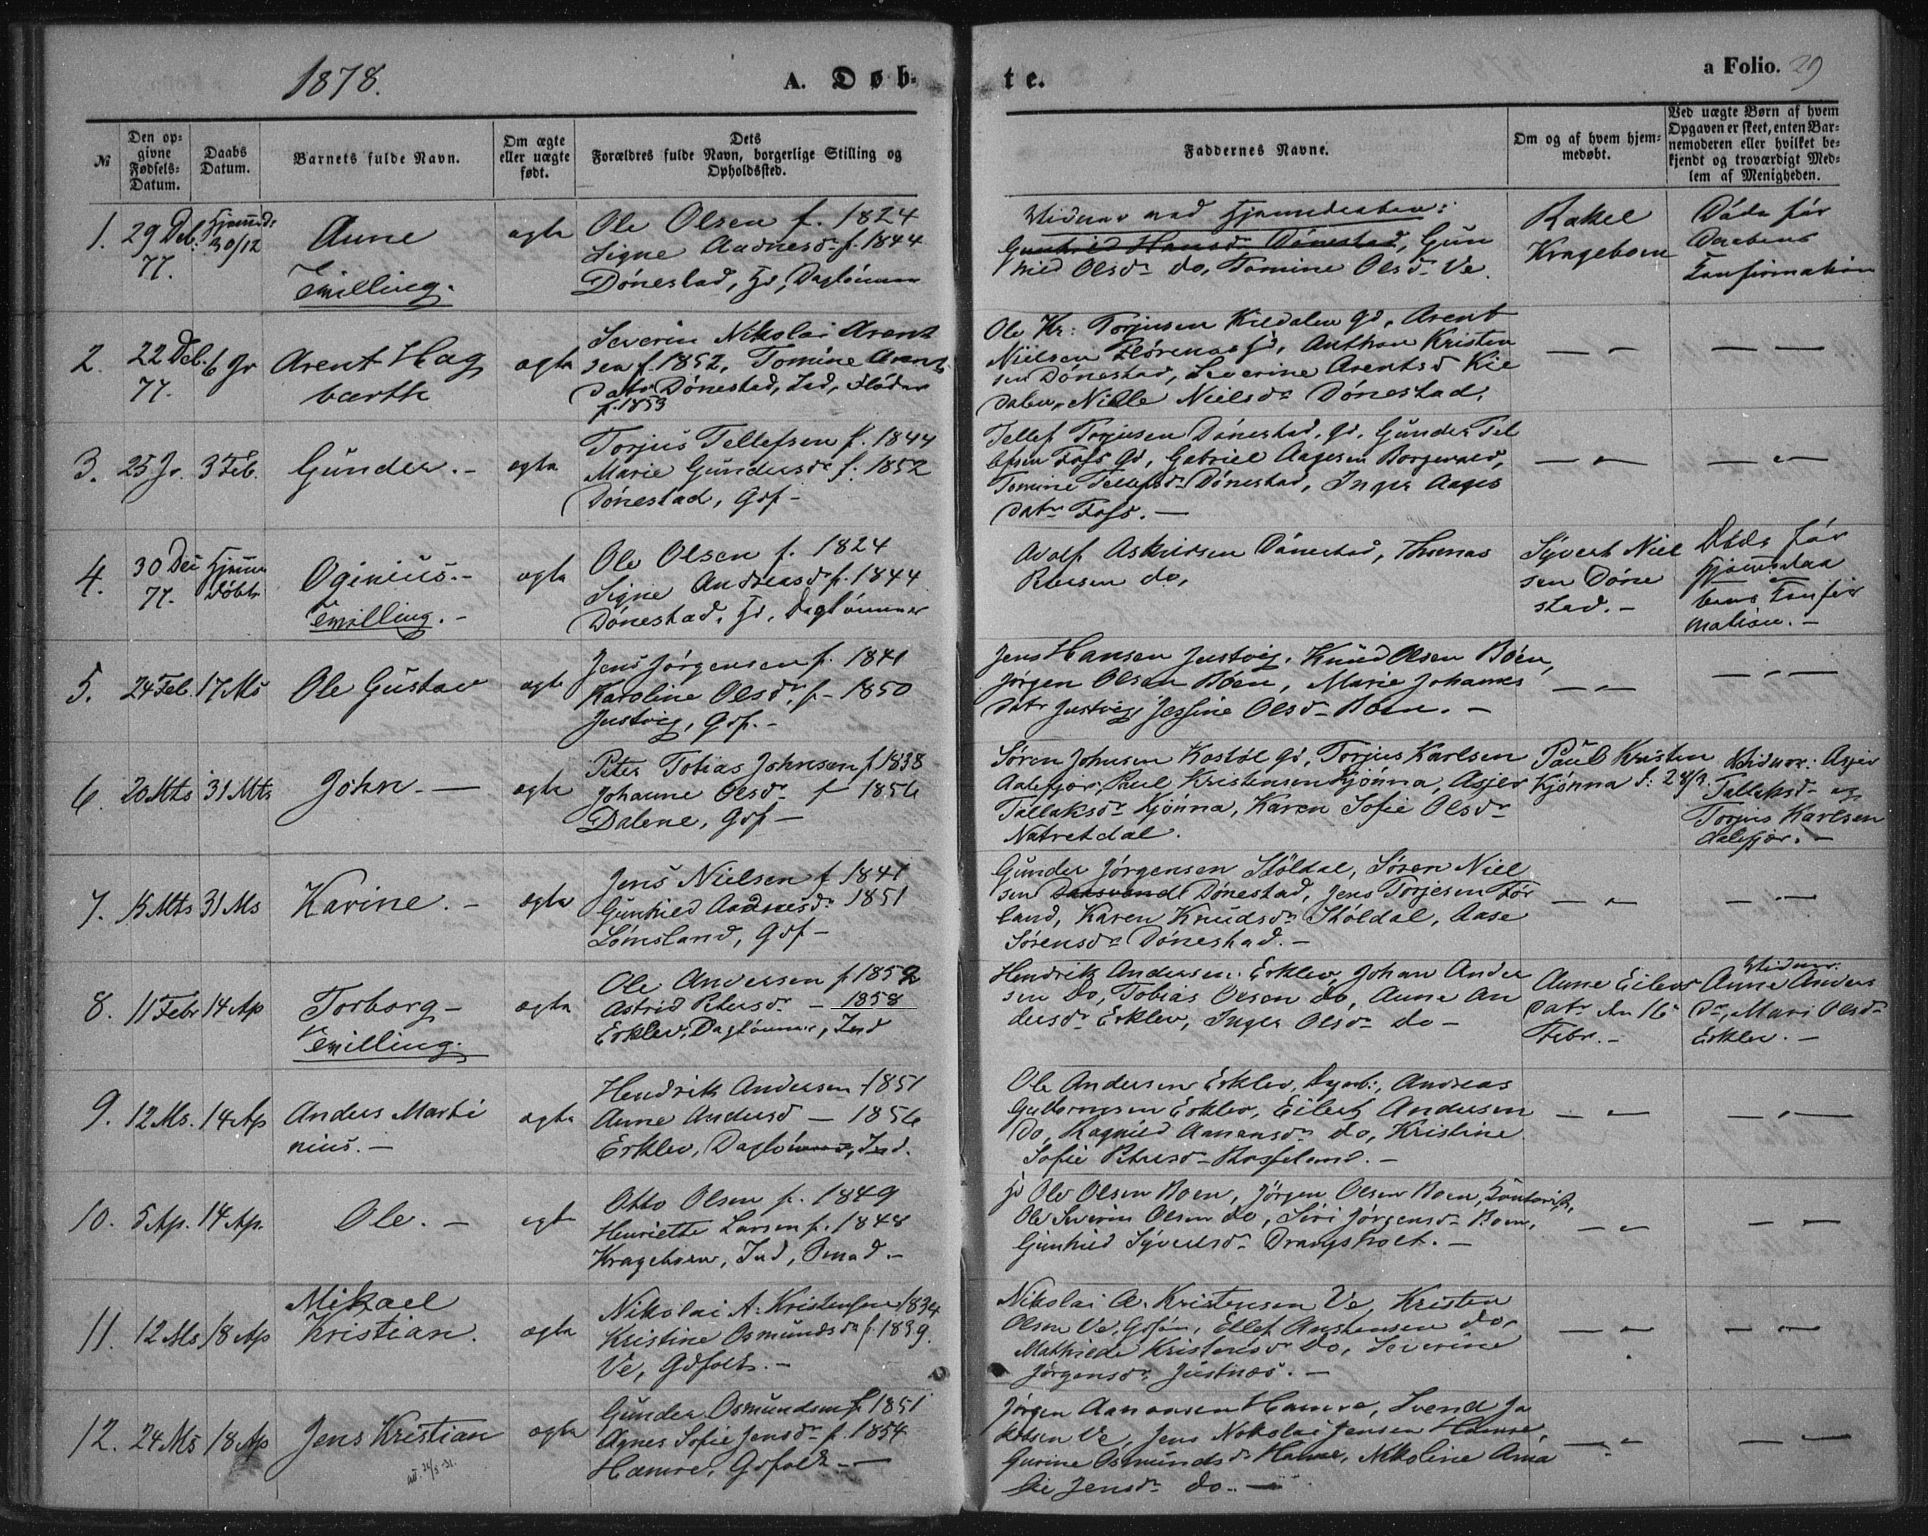 1878.
A. Døb-
te.
a Folio. 29
№
Den op-
givne
Fødsels-
Datum.
Daabs
Datum.
Barnets fulde Navn.
Om ægte
eller uægte
født.
Dets
Forældres fulde Navn, borgerlige Stilling og
Opholdssted.
Faddernes Navne.
Om og af hvem hjem-
medøbt.
Ved uægte Børn af hvem
Opgaven er skeet, enten Bar-
nemoderen eller hvilket be-
kjendt og troværdigt Med-
lem af Menigheden.
1.
29 Deb.
77.
Hjemmed.
30/12
Anne
Tvilling.
ægte
Ole Olsen f. 1824
Signe Aadnesdr f. 1844
Dønestad, Daglønner
Vidner ved Hjemmedaaben:
Gunhild Hansdr Dønestad, Gun
hild Olsdr do, Tomine Olsdr Ve.
Rakel
Krageboen
Døde før
Daabens
Konfirmation
2.
22 Deb.
77.
6 Jr
Arent Hag
barth
ægte
Severin Nikolai Arent
sen f. 1852, Tomine Arents
Datr Dønestad, Ind,
f. 1853
Ole Kr: Torjusen Kildalen gd, Arent
Nielsen Anthon Kristen
sen Dønestad, Severine Arentsd Kil
dalen, Nille Nielsdr Dønestad.
— " —
— " —
3.
25 Jr.
3 Feb.
Gunder. -
ægte
Torjus Tellefsen f. 1844
Marie Gundersdr f. 1852
Dønestad, Gdf -
Tellef Torjusen Dønestad, gd, Gunder Tel
lefsen Foss gd, Gabriel Aagesen Borgevald,
Tomine Tellefsdr Dønestad, Inger Aages
Datr Foss. —
— " —
— " —
4.
30 Dec
77.
Hjemme
Døbt
Oginius. -
Tvilling. -
ægte
Ole Olsen f. 1824
Signe Andreasd f. 1844
Dønestad, Daglønner
Adolf Askildsen Dønestad, Thomas
do,
Syvert Niel
sen Døne
stad. -
Døde før
Hjemmedaa
bens Konfir
mation. -
5.
24 Feb.
17 Ms
Ole Gustav
ægte
Jens Jørgensen f. 1841
Karoline Olsdr, f - 1850
Justvig, Gdf. -
Jens Hansen Justvig, Knud Olsen Boen,
Jørgen Olsen Boen, Marie Johannes
Datr Justvig, Jessine Olsdr Boen. -
— " —
— " —
6.
20 Mts
31 Mts
John. —
ægte
Peter Tobias Johnsen f 1838
Johanne Olsdr f 1856
Dalene, Gdf —
Søren Johnsen Kostøl gd, Torjus Karlsen
Aalefjær, Paul Kristensen Kjønna, Asjer
Tallaksdr Kjønna, Karen Sofie Olsdr
Natretdal.
Paul Kristen
Kjønna d: 28/3
Vidner: Asjer
Tallaksd. og
Torjus Karlsen
Aalefjær. -
7.
15 Mts
31 Ms
Karine. -
ægte
Jens Nielsen f 1841
Gunhild Aadnesdr 1851
Lømsland, Gdf -
Gunder Jørgensen Støldal, Søren Niel
sen Dønestad, Jens Torjesen For
land, Karen Knudsdr Støldal, Aase
Sørensdr Dønestad. -
— " —
— " —
8.
11 Febr
14 Ap
Torborg -
Tvilling.
ægte
Ole Andersen f 1852
Astrid Petersdr - 1858
Erklev, Daglønner, Ind
Hendrik Andersen Erklev, Johan Ander
sen do, Tobias Olsen do, Anne An
dersdr Erklev, Inger Olsdr do -
Anne Eilevs
Datr den 16
Febr. -
Vidner.
Anne Anders
Dr, Mari Olsdr
Erklev. -
9.
12 Ms.
14 Ap
Anders Marti
nius. -
ægte
Hendrik Andersen 1851
Anne Andersd - 1856
Erklev, Daglønner, Ind.
Ole Andersen Erklev, Andreas
Guttormsen Erklev, Eilert Andersen
do, Ragnild Aanensdr do, Kristine
Sofie Petersd
— " —
— " —
10.
5 Ap.
14 Ap.
Ole. -
ægte
Otto Olsen f. 1849
Henriette Larsen f. 1848
Krageboen, Ind, Smed. -
Ole Olsen Boen, Jørgen Olsen Boen,
Ole Severin Olsen do, Siri Jørgensdr Boen,
Gunhild Syvertsdr Drangsholt. -
— " —
— " —
11.
12 Ms
18 Ap
Mikael
Kristian.
ægte
Nikolai A. Kristensen 1834
Kristine Osmundsdr f. 1839.
Ve, Gdfolk. -
Nikolai A. Kristensen Ve, Kristen
Olsen Ve, Ellef Austensen do,
Mathilde Kristensdr do, Severine
Jørgensdr Justnæs. -
— " —
— " —
12.
24 Ms
18 Ap
Jens Kristian
ægte
Gunder Osmundsen f. 1851
Agnes Sofie Jensdr f. 1854
Hamre, Gdfolk —
Jørgen Aanonsen Hamre, Svend Ja
kobsen Ve, Jens Nikolai Jensen Hamre,
Gurine Osmundsdr Hamre, Nikoline Ama
lie Jensdr do. —
— " —
— " —